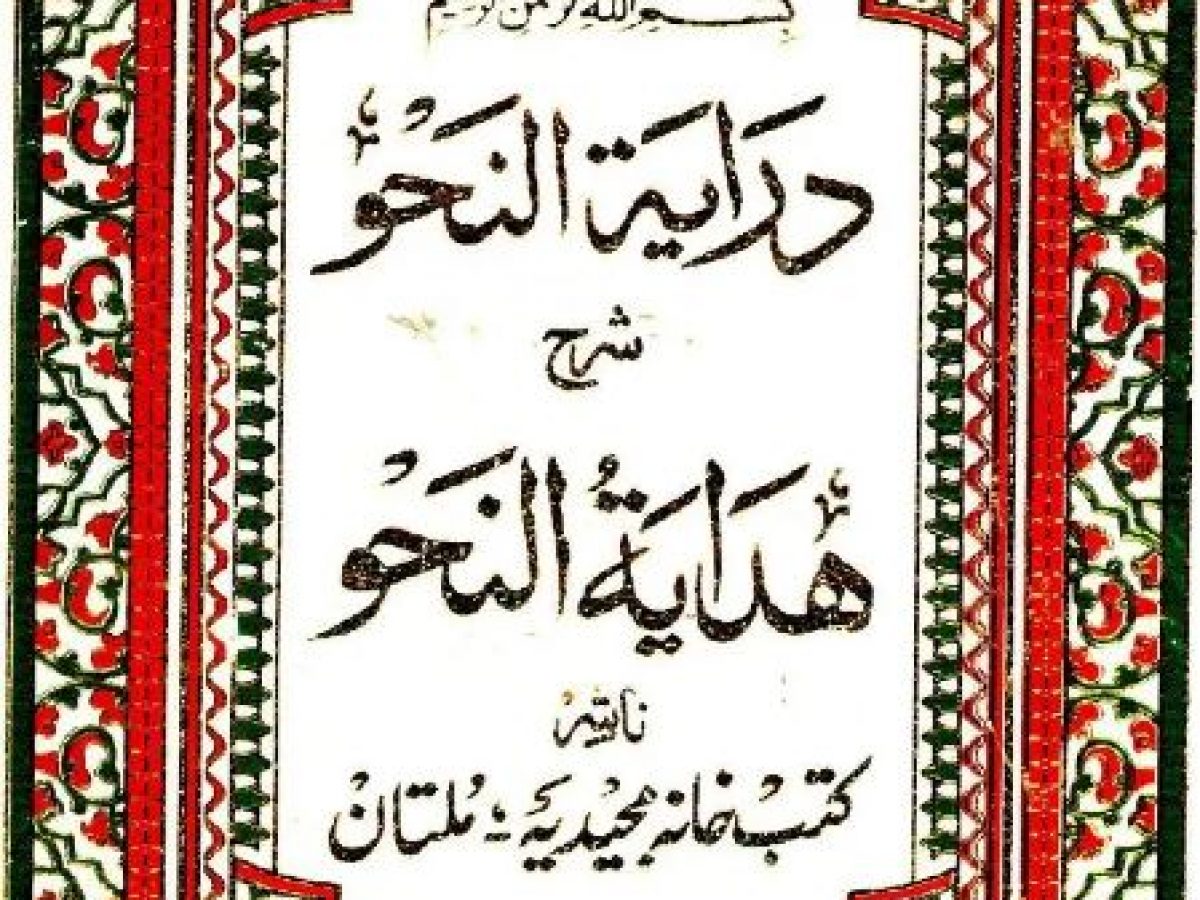 بسم الله الرحمن الرحيم
دراية النحو
شرح
هداية النحو
ناشر
کتب خانہ مجیدیہ ۔ ملتان